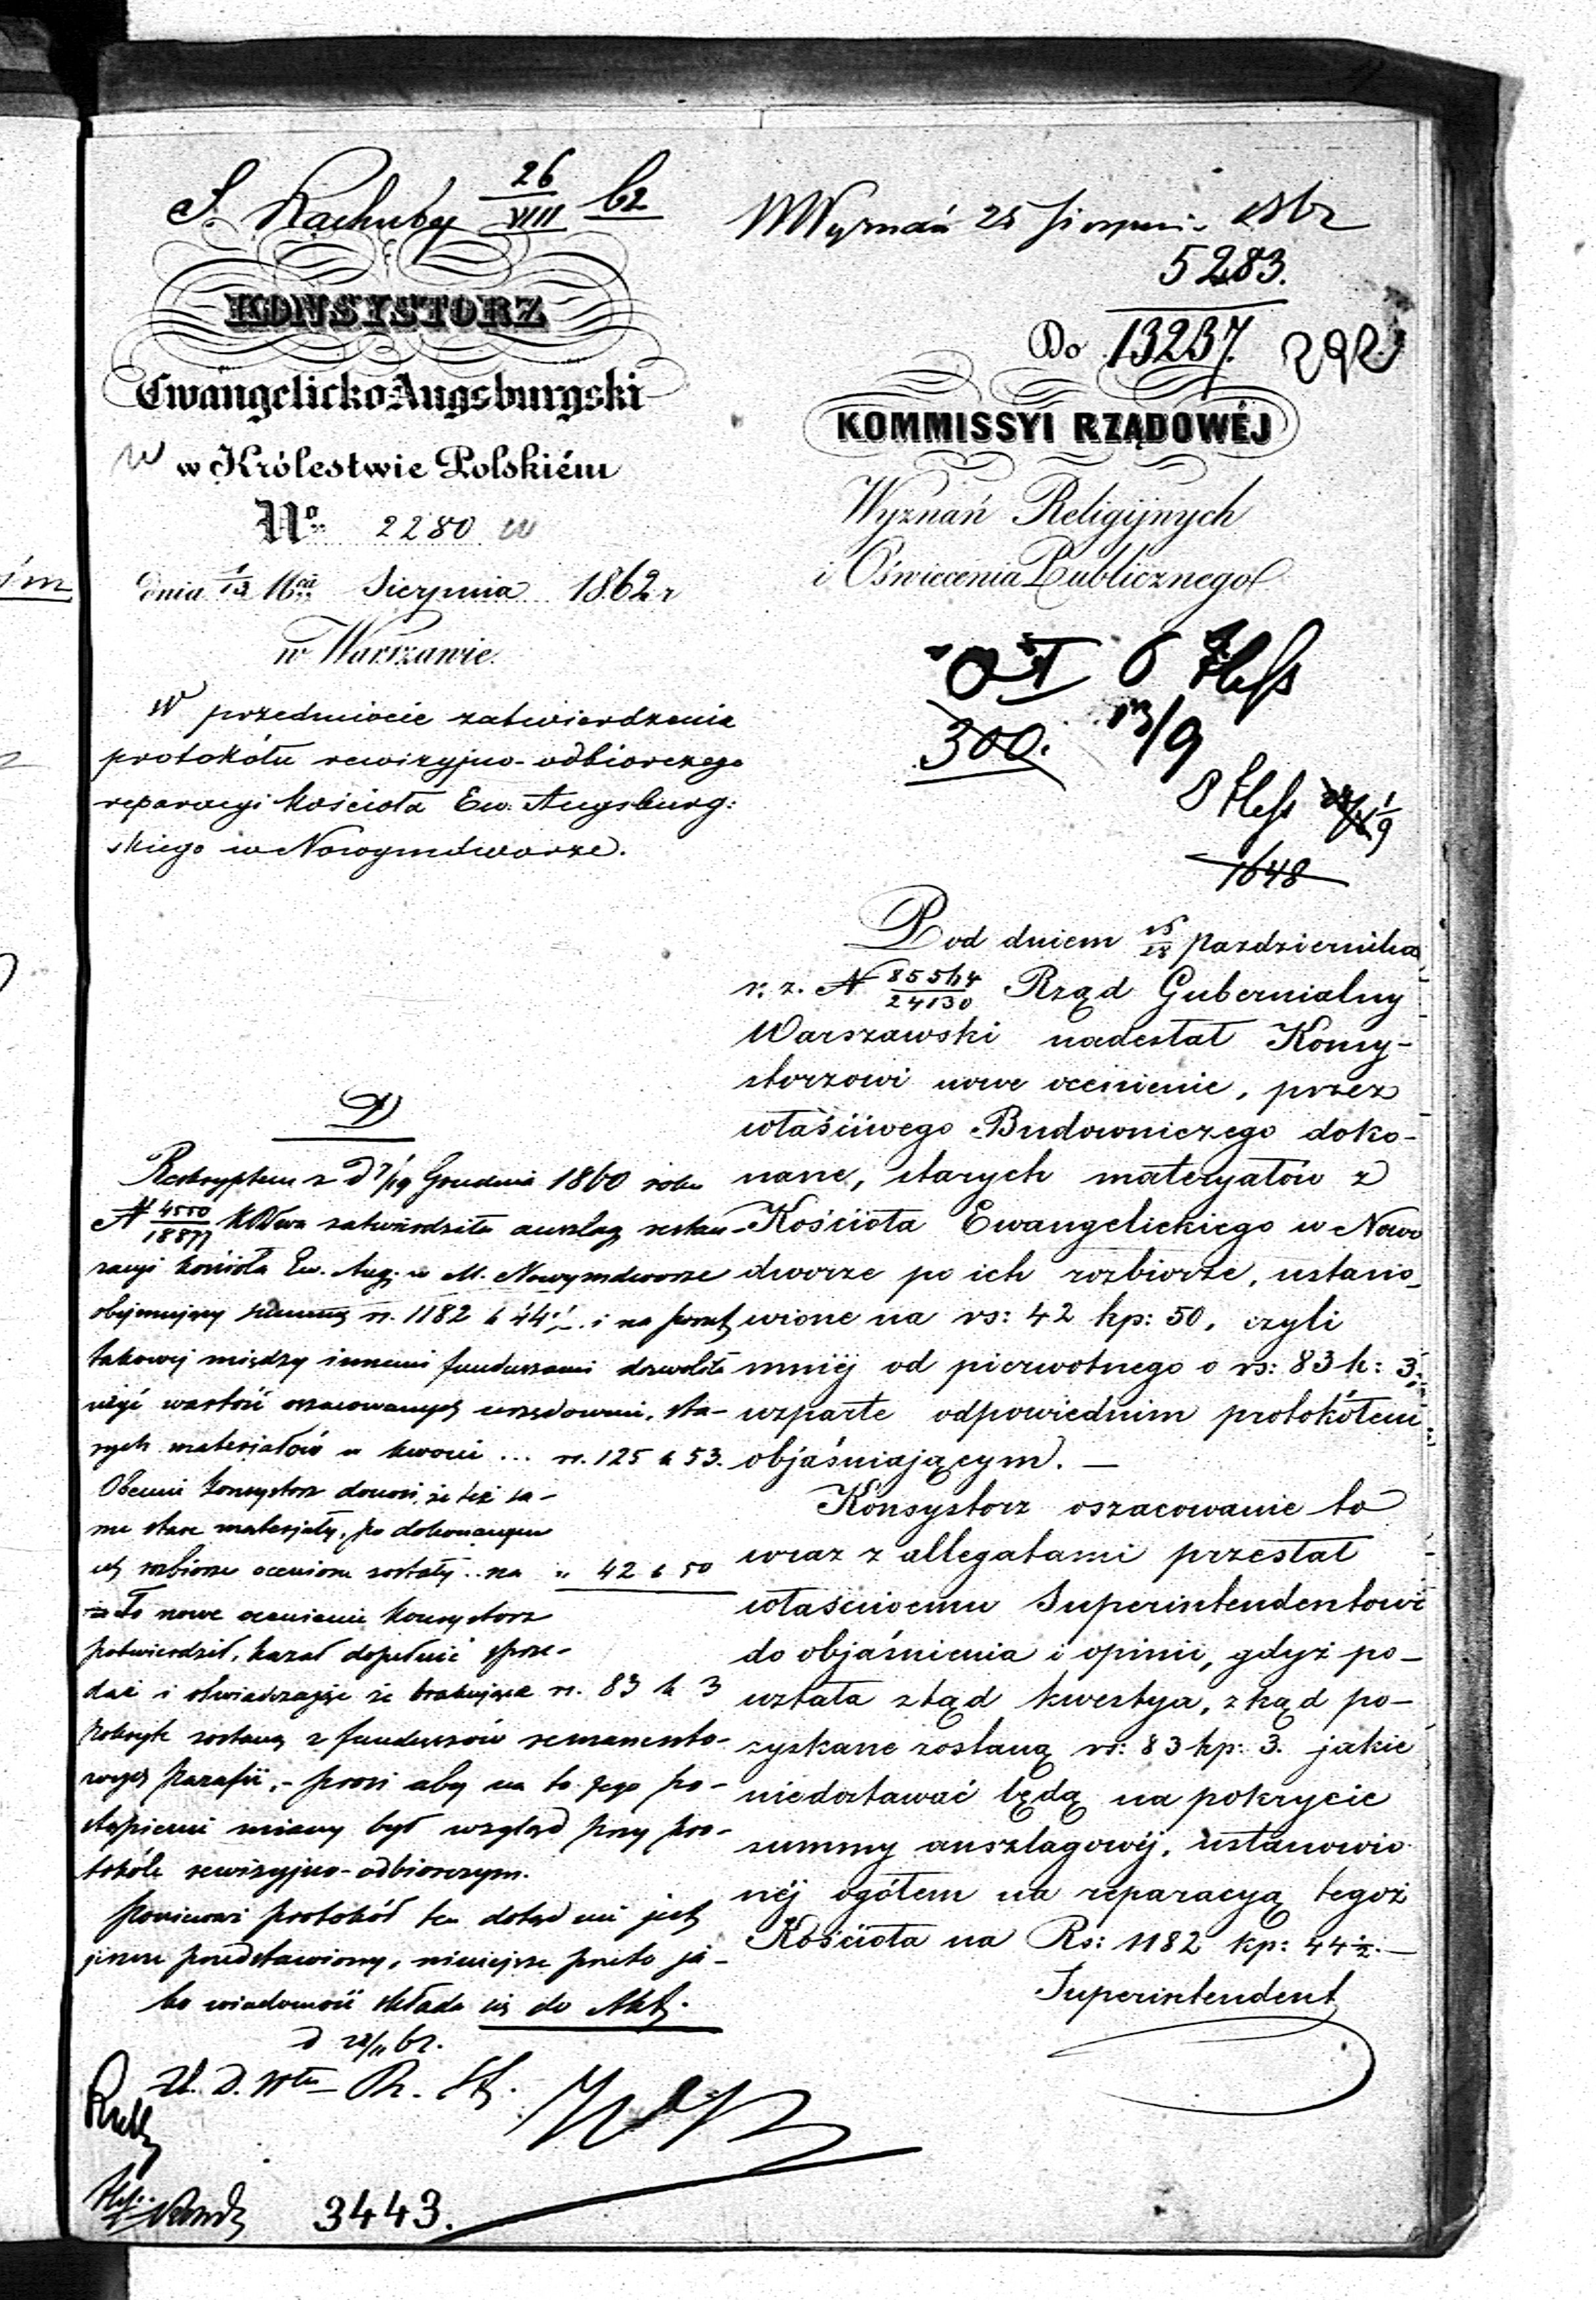 S. Rachuby 26/VIII 62
KONSYSTORZ
Ewangelicko-Augsburgski
w Królestwie Polskiém
No 2280
dnia 1/13 Sierpnia 1862 r
w Warszawie.
W przedmiocie zatwierdzenia
protokółu rewizyjno-odbiorczego
reparacyi kościoła Ew. Augsburg:
skiego w Nowymdworze.
Reskryptem z d 7/19 Grudnia 1860 roku
N 4550/18877 zatwierdziła anszlag restau-
racyi kościoła Ew. Aug: w M. Nowymdworze
obejmujący summę rs. 1182 k 44 1/2 i na poczet
takowej między innemi funduszami dozwoliła
użyć wartość oszacowanych urzędownie, sta-
rych materjałów w kwocie ... rs. 125 k 53.
Obecnie Konsystorz donosi, że też sa-
me stare materjały, po dokonanym
ich rozbiorze ocenione zostały .. na " 42 k 50
To nowe ocenienie Konsystorz
potwierdził, kazał dopełnić sprze-
daż i oświadczając że brakujące rs. 83 k 3
pokryte zostaną z funduszów remanento-
wych Parafii, - prosi aby na to jego po-
stąpienie miany był wzgląd przy pro-
tokóle rewizyjno-odbiorczym.
Ponieważ protokół ten dotąd nie jest
jeszcze przedstawiony, niniejsze przeto ja-
ko wiadomość składa się do Akt.
d 22/11 62.
3443.
WWyznań 25 Sierpnia 1862
5283.
Do 13237. 292
KOMMISSYI RZĄDOWÉJ
Wyznań Religijnych
i Oświecenia Publicznego
6
300. 13/9
8
1648
Pod dniem 16/28 Pazdziernika
r. z. N 85564/24130 Rząd Gubernialny
Warszawski nadesłał Konsy-
storzowi nowe ocenienie, przez
właściwego Budowniczego doko-
nane, starych materyałów z
Kościoła Ewangelickiego w Nowo
dworze po ich rozbiorze, ustano-
wione na rs: 42 kp: 50, czyli
mniéj od pierwotnego o rs: 83 k: 3,
wzparte odpowiednim protokółem
objaśniającym. —
Konsystorz oszacowanie to
wraz z allegatami przesłał
właściwemu Superintendentowi
do objaśnienia i opinii, gdyż po-
wstała ztąd kwestya, zkąd po-
zyskane zostaną rs: 83 kp: 3. jakie
niedostawać będą na pokrycie
summy anszlagowéj, ustanowio
néj ogółem na reparacyą tegoż
Kościoła na Rs: 1182 kp: 44 1/2. —
Superintendent